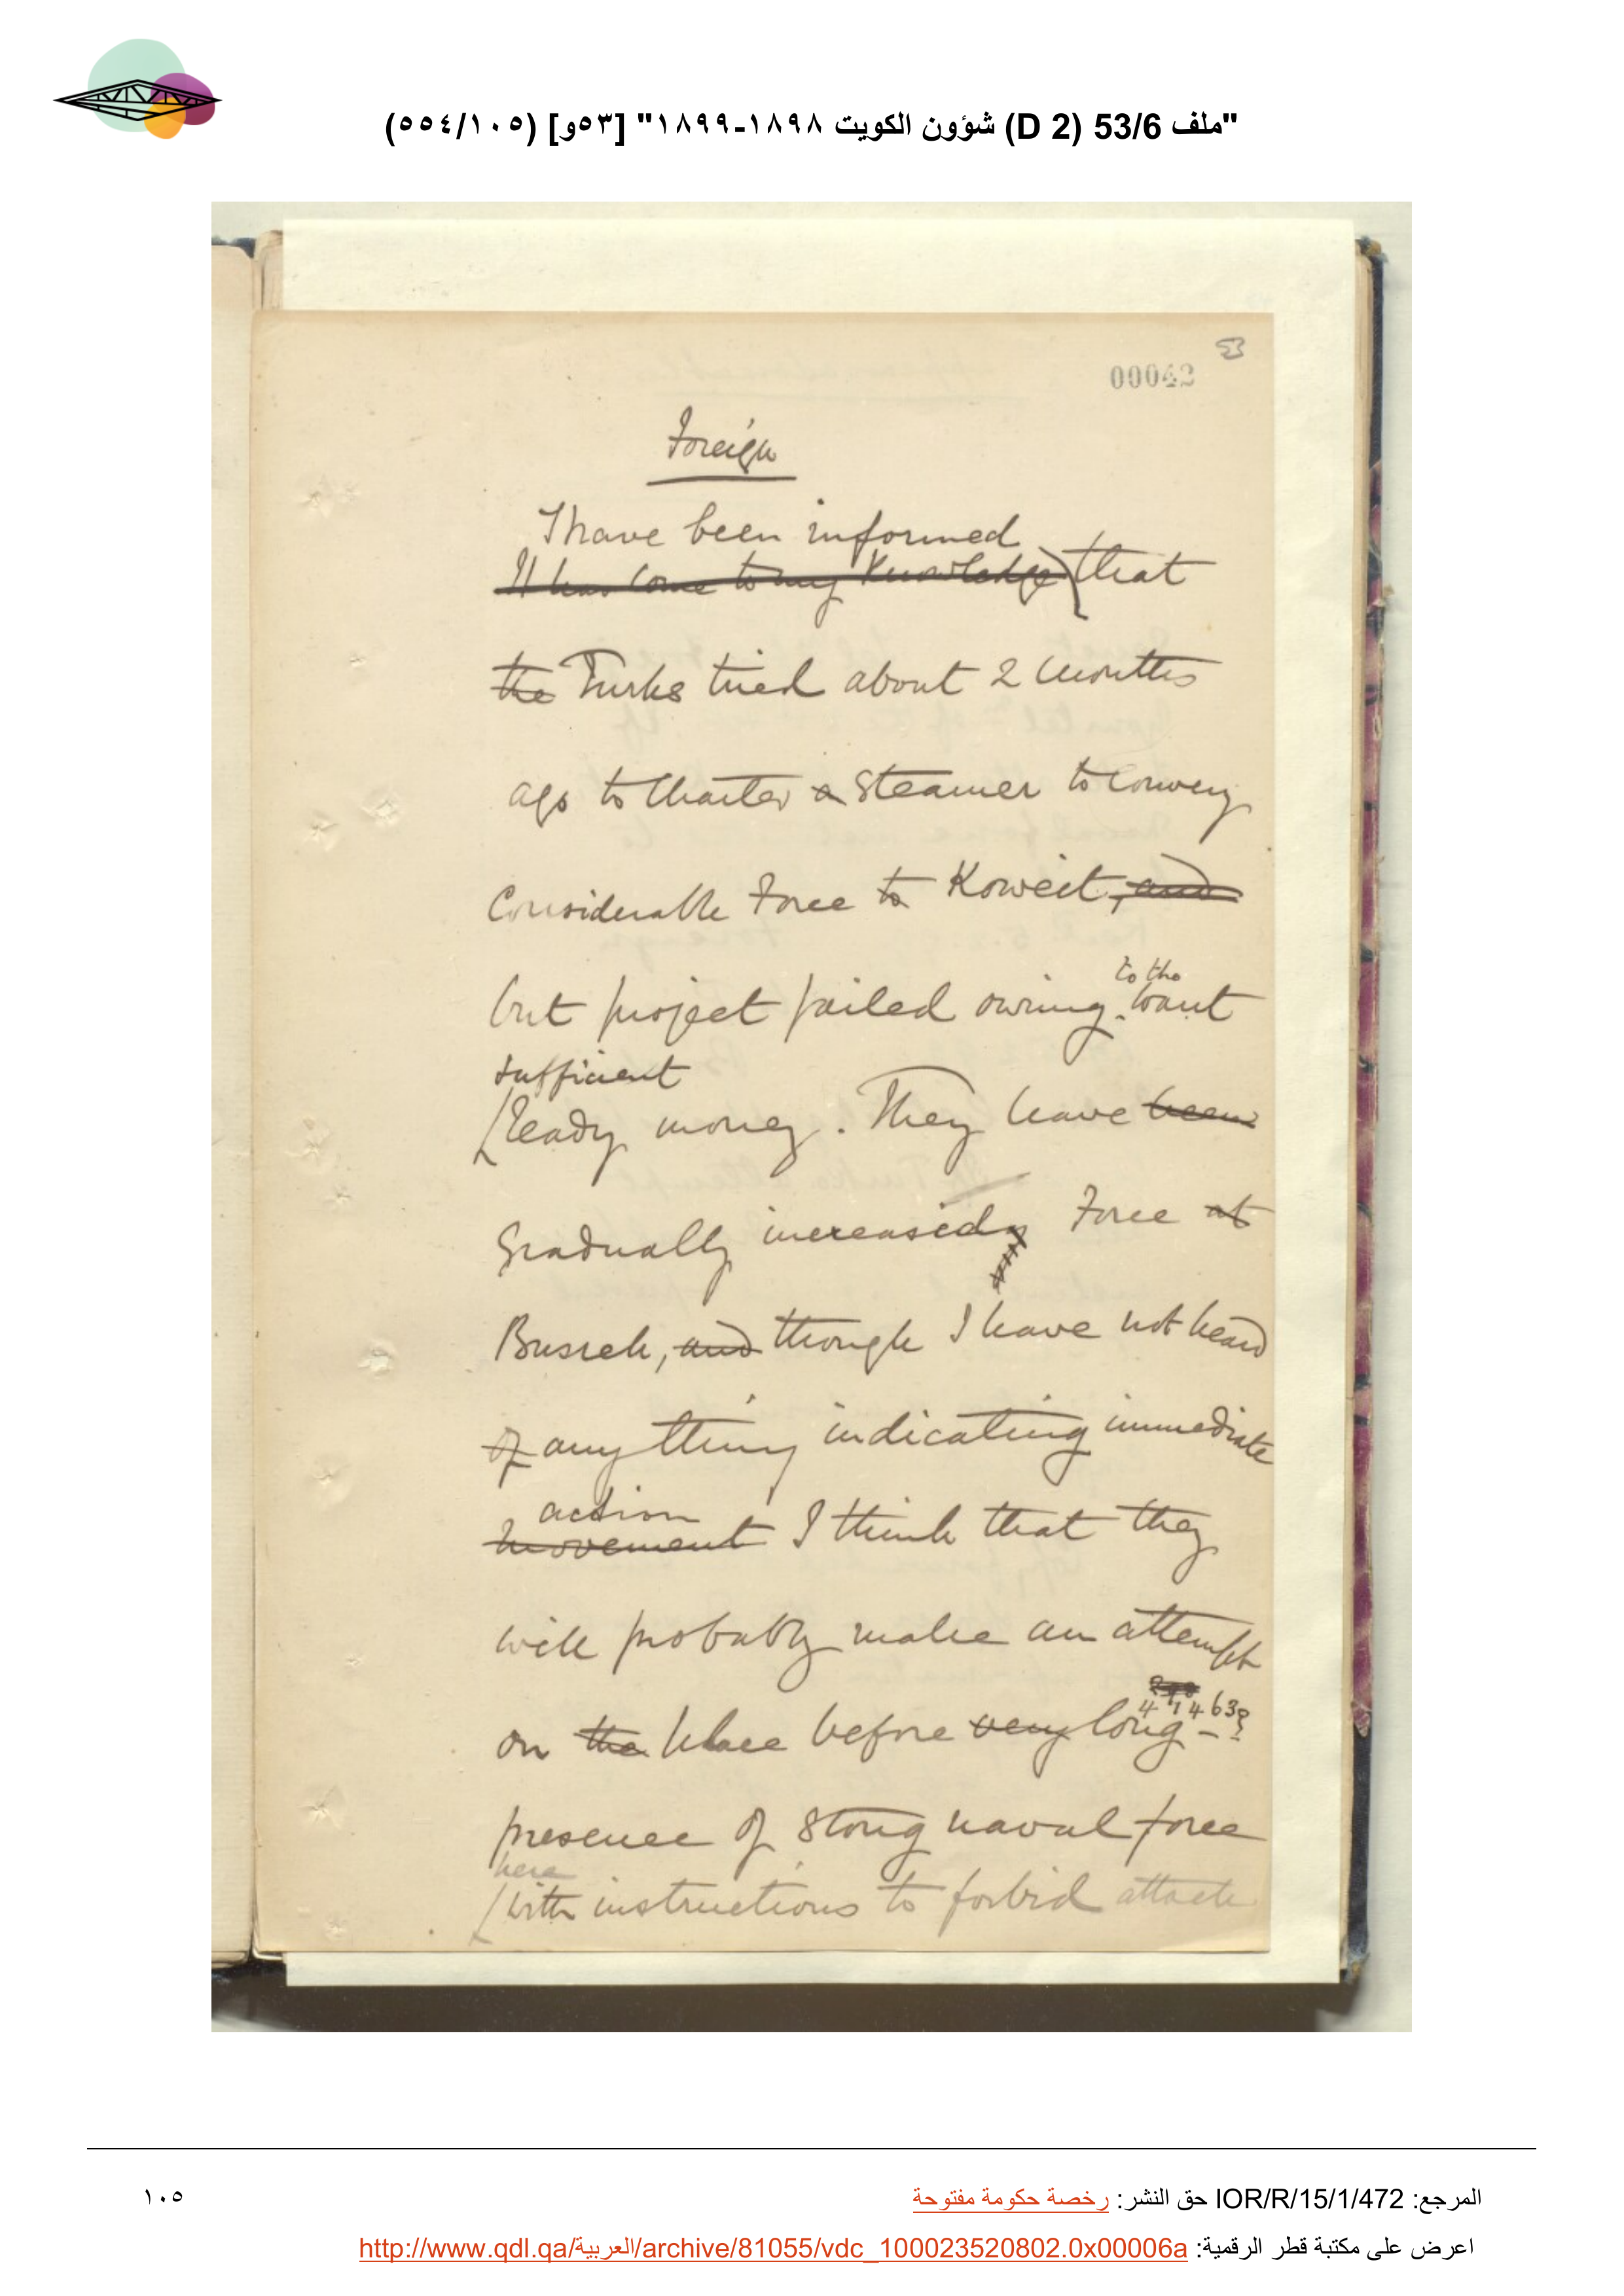 "ملف 53/6 (D 2) شؤون الكويت ١٨٩٨-١٨٩٩" [٥٣و] (٥٥٤/١٠٥)
53
00042
Foreign
I have been informed
It has come to my knowledge that
the Turks tried about 2 months
ago to charter a steamer to convey
considerable force to Koweit, and
but project failed owing to the want
sufficient
ready money. They have been
gradually increased force at
Busreh, and though I have not heard
of anything indicating immediate
action
movement I think that they
will probably make an attempt
on the place before very long -
presence of strong naval force
here
with instructions to forbid attack
المرجع: IOR/R/15/1/472 حق النشر: رخصة حكومة مفتوحة
١٠٥
اعرض على مكتبة قطر الرقمية: http://www.qdl.qa/العربية/archive/81055/vdc_100023520802.0x00006a